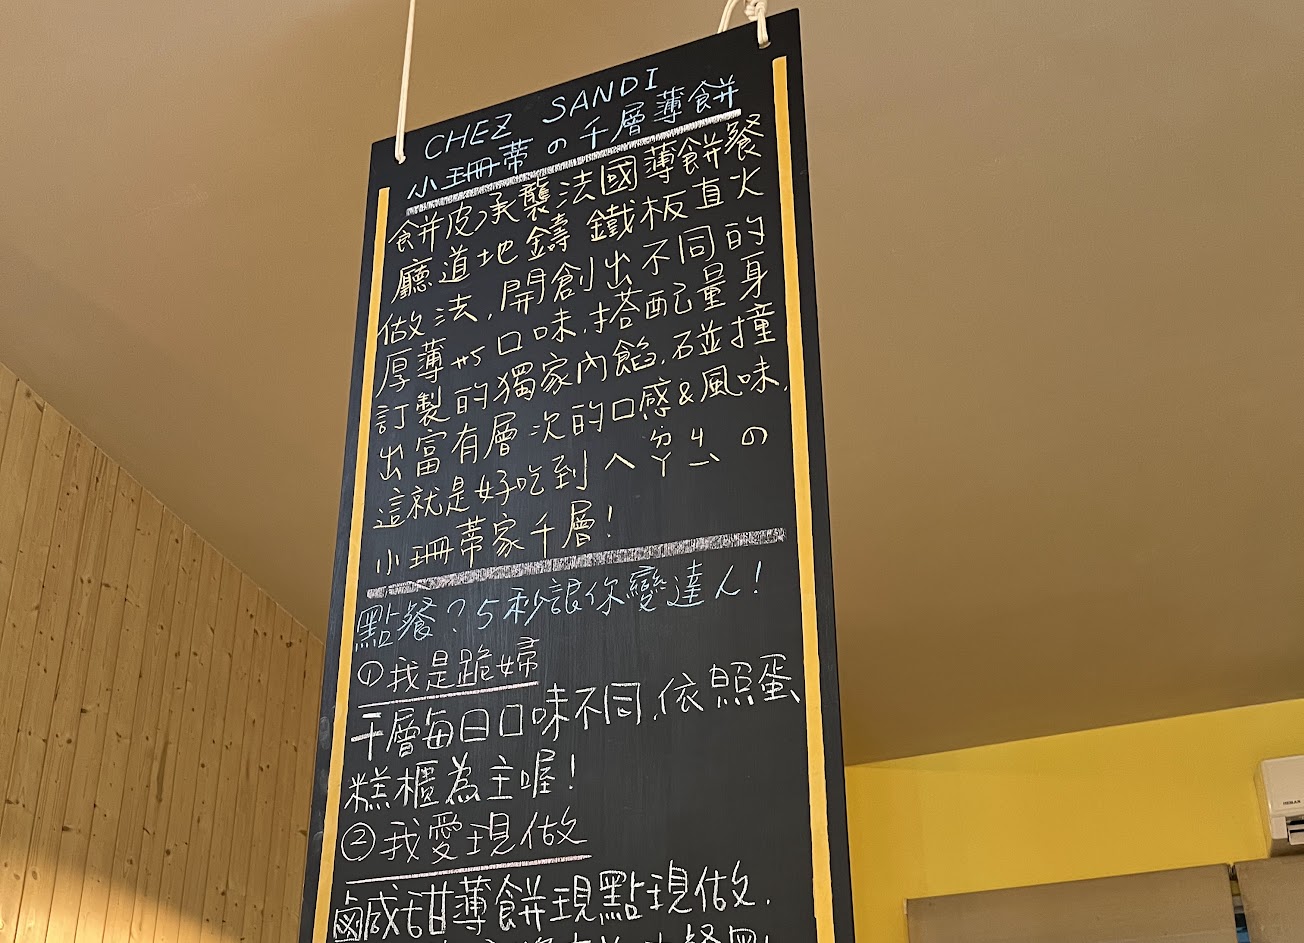 CHEZ SANDI
小珊蒂の千層薄餅
餅皮承襲法國薄餅餐
廳道地鑄鐵板直火
做法,開創出不同的
厚薄 口味,搭配量身
訂製的獨家內餡,碰撞
出富有層次的口感&風味,
這就是好吃到ㄟ の
小珊蒂家千層!
點餐?5秒讓你變達人!
①我是跪婦
千層每日口味不同,依照蛋
糕櫃為主喔!
②我愛現做
鹹甜薄餅現點現做,
HERAN